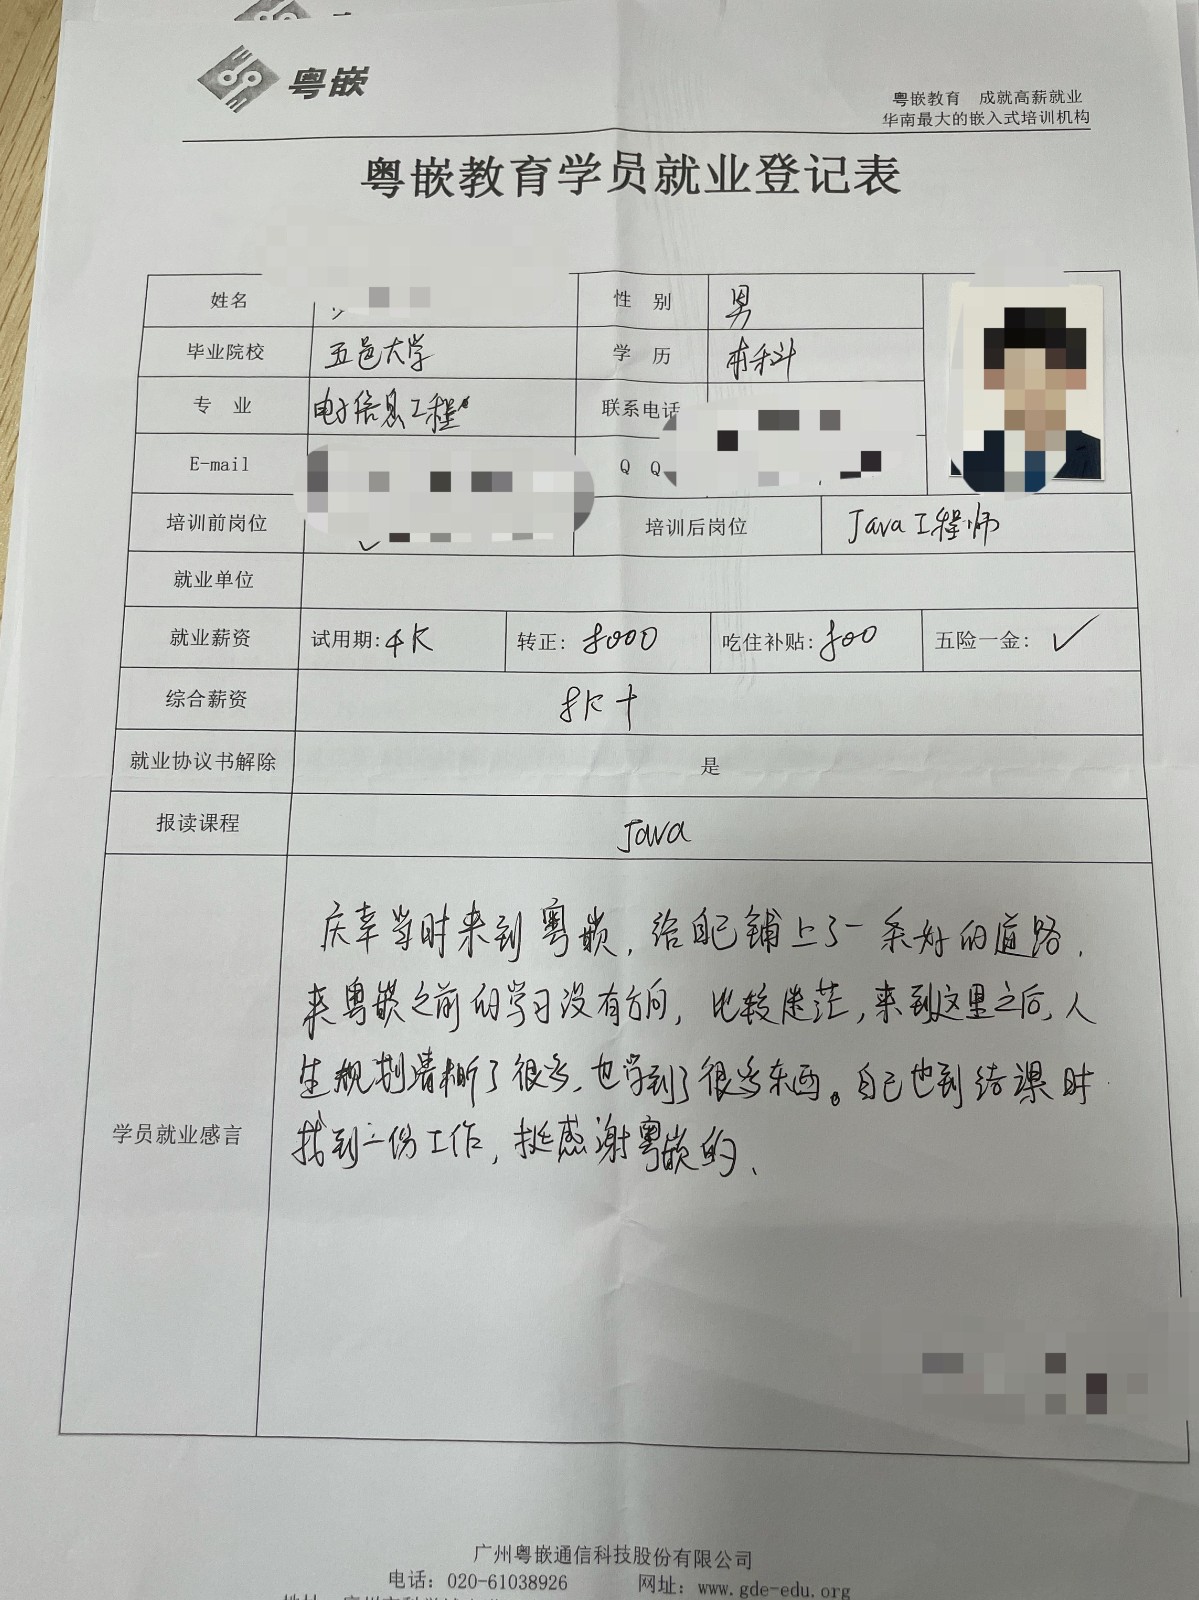 粤嵌
粤嵌教育 成就高薪就业
华南最大的嵌入式培训机构
粤嵌教育学员就业登记表
姓名 性 别 男
毕业院校 五邑大学 学 历 本科
专 业 电子信息工程 联系电话
E-mail Q Q
培训前岗位 培训后岗位 Java工程师
就业单位
就业薪资 试用期:4K 转正: 8000 吃住补贴: 800 五险一金: ✓
综合薪资 8K+
就业协议书解除 是
报读课程 Java
学员就业感言
庆幸当时来到粤嵌,给自己铺上了一条好的道路.
来粤嵌之前的学习没有方向,比较迷茫,来到这里之后,人
生规划清晰了很多,也学到了很多东西。自己也到结课时
找到一份工作,挺感谢粤嵌的、
广州粤嵌通信科技股份有限公司
电话: 020-61038926 网址: www.gde-edu.org